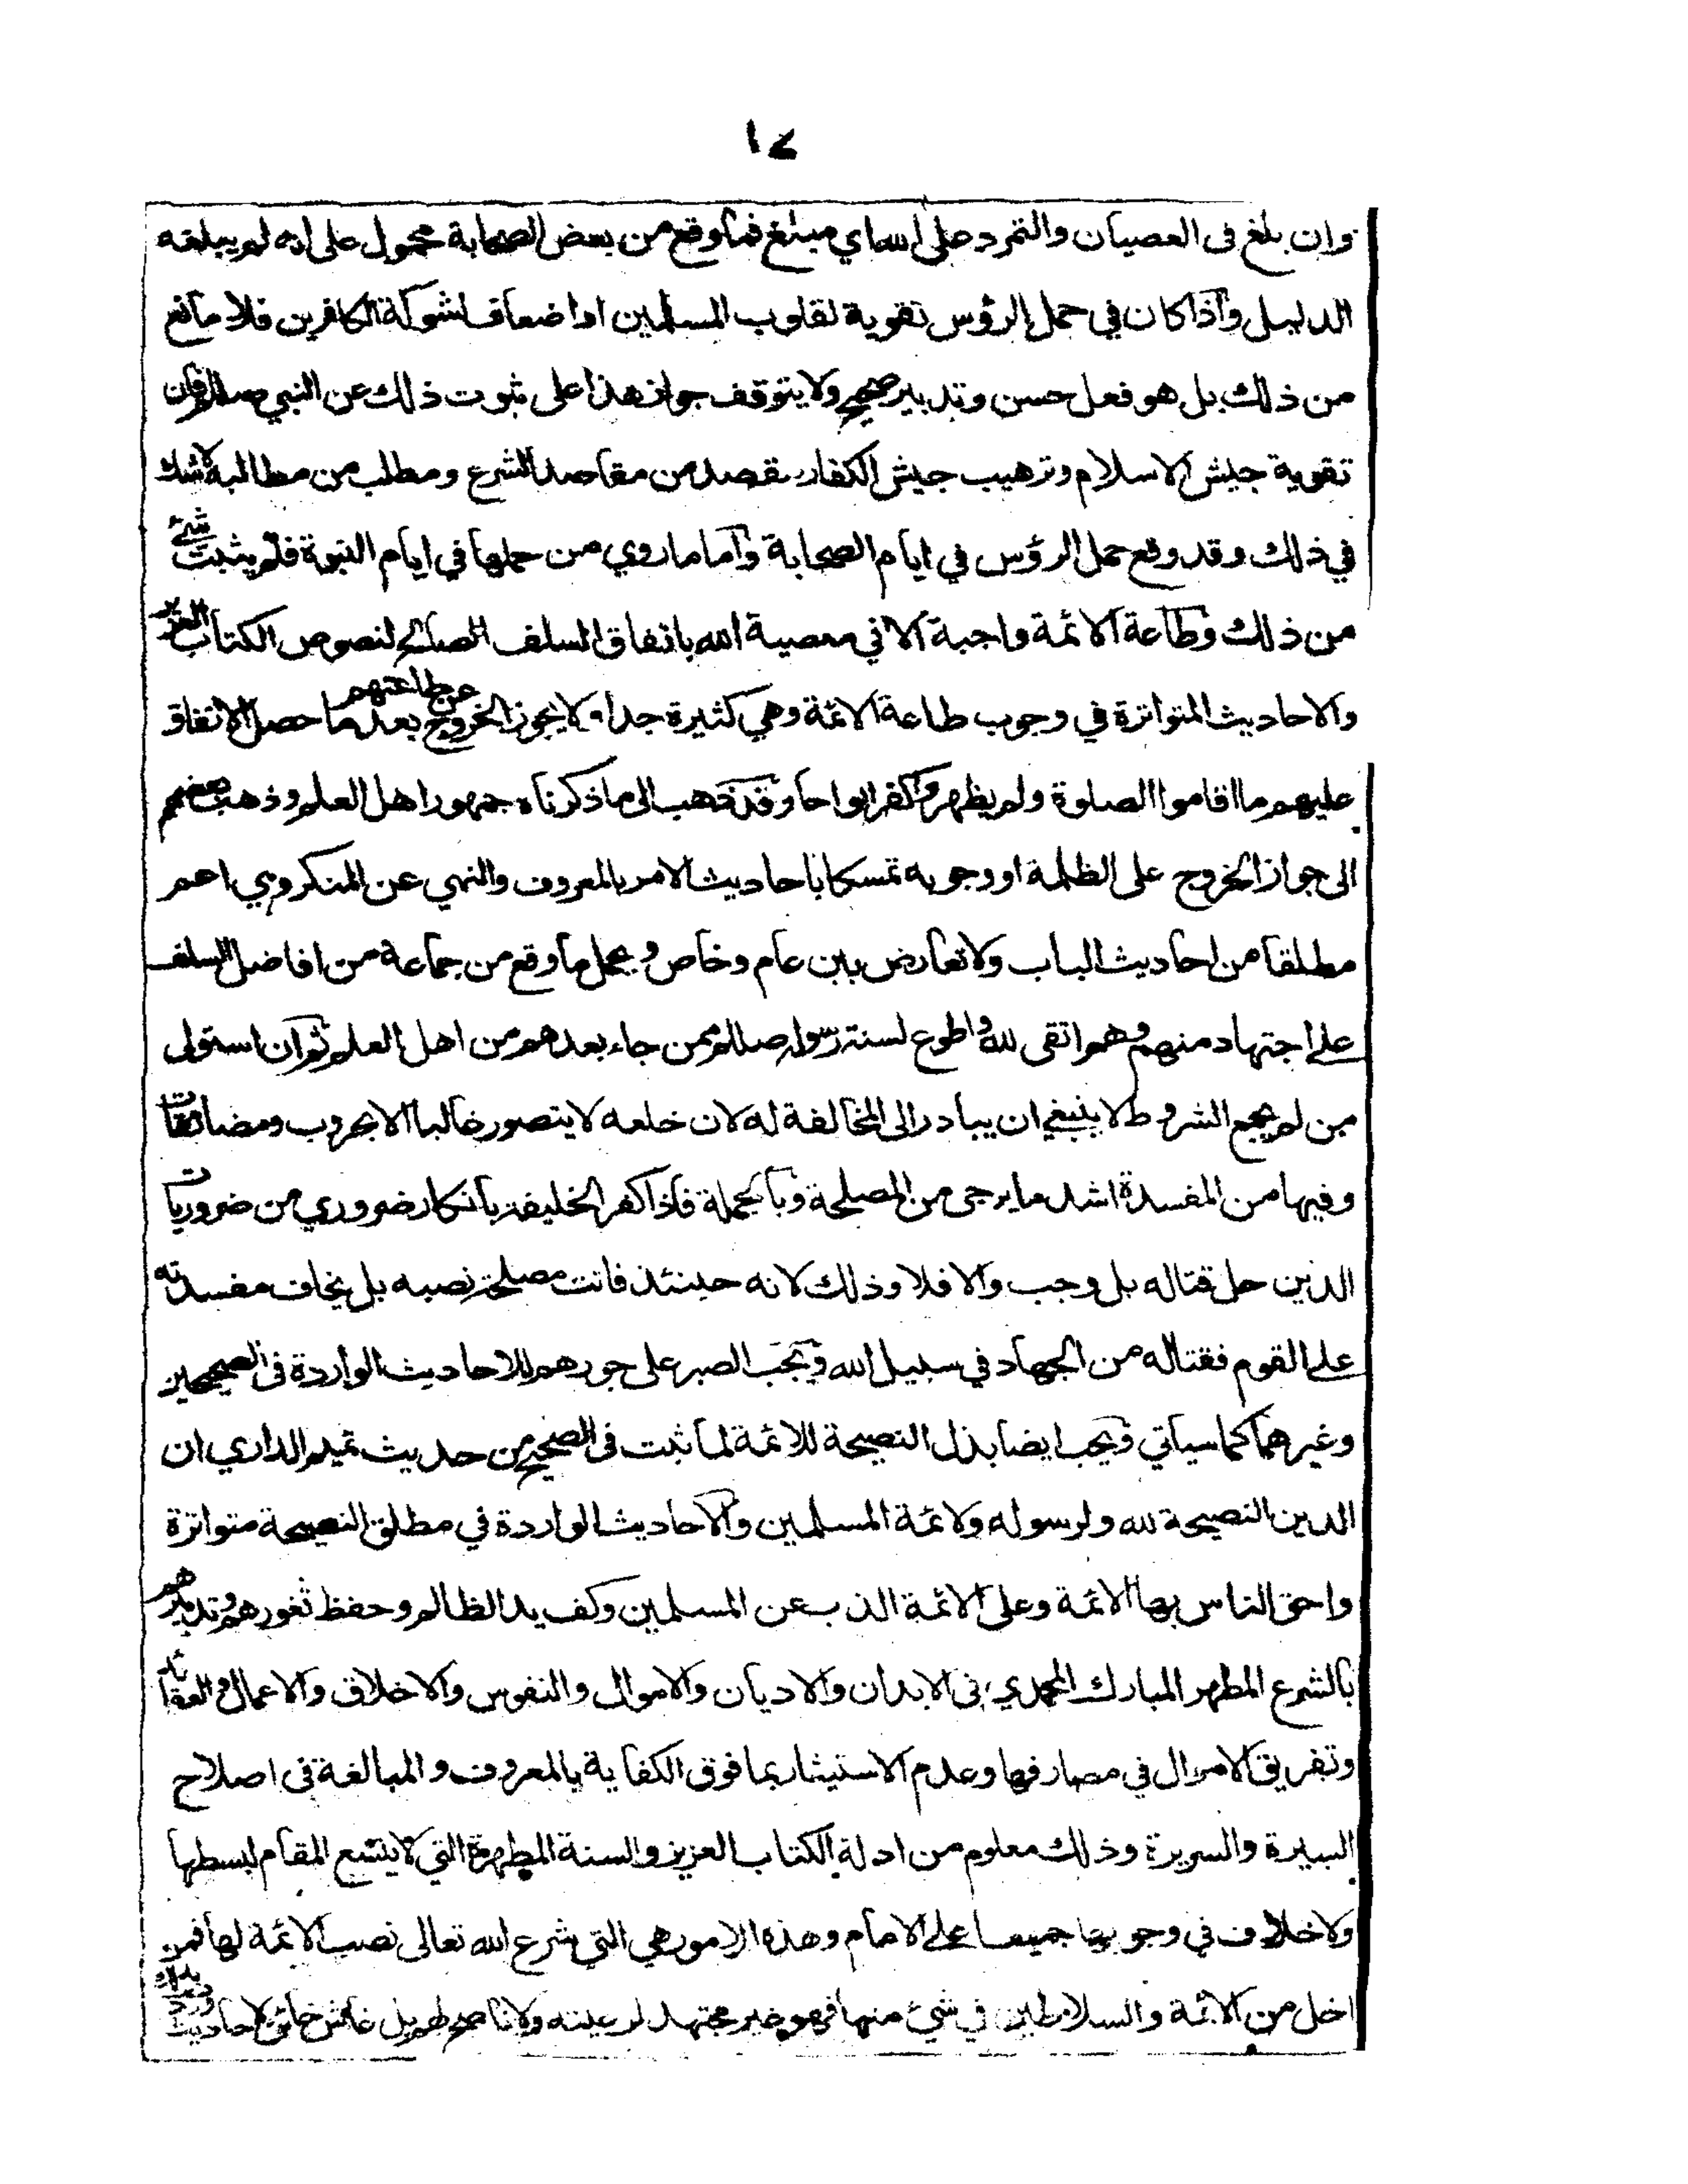 ١٤
وان بلغ فى العصيان والتمرد على الله اي مبلغ فما وقع من بعض الصحابة محمول على انه لم يبلغه
الدليل واذا كان في حمل الرؤس تقوية لقلوب المسلمين او اضعاف لشوكة الكافرين فلا مانع
من ذلك بل هو فعل حسن وتدبير صحيح ولا يتوقف جواز هذا على ثبوت ذلك عن النبي صللم فان
تقوية جيش الاسلام وترهيب جيش الكفار مقصد من مقاصد الشرع ومطلب من مطالبه لا شك
في ذلك وقد وقع حمل الرؤس في ايام الصحابة واما ما روي من حملها في ايام النبوة فلم يثبت شئ
من ذلك وطاعة الائمة واجبة الا في معصية الله باتفاق السلف الصالح لنصوص الكتاب العزيز
والاحاديث المتواترة في وجوب طاعة الائمة وهي كثيرة جدا ولا يجوز الخروج عن طاعتهم بعد ما حصل الاتفاق
عليهم ما اقاموا الصلوة ولم يظهروا كفرا بواحا وقد ذهب الى ما ذكرناه جمهور اهل العلم وذهب بعضهم
الى جواز الخروج على الظلمة او وجوبه تمسكا باحاديث الامر بالمعروف والنهي عن المنكر وهي اعم
مطلقا من احاديث الباب ولا تعارض بين عام وخاص ويحمل ما وقع من جماعة من افاضل السلف
على اجتهاد منهم وهم اتقى لله واطوع لسنة رسول صللم ممن جاء بعدهم من اهل العلم ثم ان استولى
من لم يجمع الشروط لا ينبغي ان يبادر الى المخالفة له لان خلعه لا يتصور غالبا الا بحروب ومضايقات
وفيها من المفسدة اشد ما يرجى من المصلحة وبالجملة فاذا كفر الخليفة بانكار ضروري من ضروريات
الدين حل قتاله بل وجب والا فلا وذلك لانه حينئذ فاتت مصلحة نصبه بل يخاف مفسدته
على القوم فقتاله من الجهاد في سبيل الله ويجب الصبر على جورهم للاحاديث الواردة فى الصحيحين
وغيرهما كما سياتي ويجب ايضا بذل النصيحة للائمة لما ثبت فى الصحيح من حديث تميم الداري ان
الدين النصيحة لله ولرسوله ولائمة المسلمين والاحاديث الواردة في مطلق النصيحة متواترة
واحق الناس بها الائمة وعلى الائمة الذب عن المسلمين وكف يد الظالم وحفظ ثغورهم وتدبيرهم
بالشرع المطهر المبارك المحمدي فى الابدان والاديان والاموال والنفوس والاخلاق والاعمال والعقائد
وتفريق الاموال في مصارفها وعدم الاستيثار بما فوق الكفاية بالمعروف والمبالغة فى اصلاح
السيرة والسريرة وذلك معلوم من ادلة الكتاب العزيز والسنة المطهرة التي لا يتسع المقام لبسطها
ولا خلاف في وجوبها جميعا على الامام وهذه الامور هي التي شرع الله تعالى نصب الائمة لها فمن
اخل من الائمة والسلاطين في شئ منها فهو غير مجتهد لرعيته ولا ناصح لهم بل غاش خائن